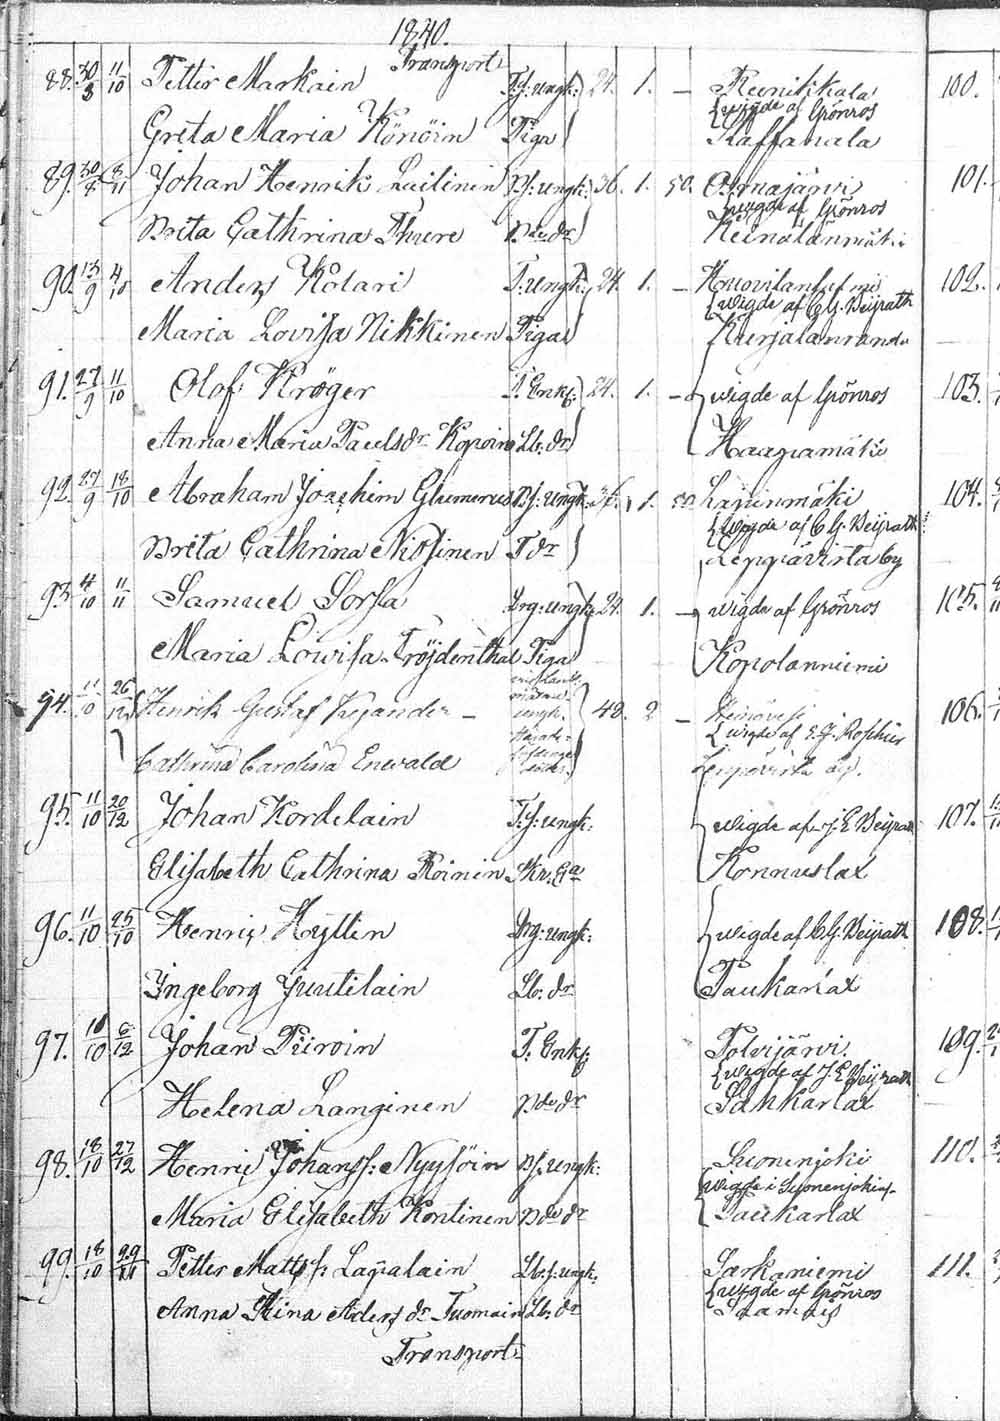 1840.
Transport
88. 30/8 11/10 Petter Markain T:f: ungk: 24. 1. — Reinikkala
{wigde af Grönros
Greta Maria Könöin Piga Saffarala
89. 30/8 8/11 Johan Henrik Luilinen B:f: ungk: 36. 1. 50. Osmajärvi
{wigde af Grönros
Brita Cathrina Thure Bde dr Heinälänmäki
90. 13/9 4/10 Anders Kolari T: ungk: 24. 1. —
{wigde af C G. Veijrath
Maria Lovisa Nikkinen Piga Kurjalanranda
91. 27/9 11/10 Olof Kröger T. Enkf: 24. 1. — {wigde af Grönros
Anna Maria Paulsdr Kopoin Lb: dr Haapamäki
92. 27/9 18/10 Abraham Joachim Glumerus B:f: ungk: 36. 1. 50
{wigde af C G. Veijrath
Brita Cathrina Nissinen T dr Leppävirta by
93. 4/10 11/11 Samuel Sorsa Drg: ungk: 24. 1. — wigde af Grönros
Maria Lowisa Fröjdenthal Piga Kopolanniemi
94. 11/10 26/12 Henrik Gustaf Kyander — ungk. 48. 2 — Heinävesi
{wigde af E. J. Roschier
Cathrina Carolina Enwald Leppävirta by.
95. 11/10 20/12 Johan Kordelain T:f: ungk: {wigde af J. E Veijrath
Elisabeth Cathrina Roinin Skr. Ea Konnuslax
96. 11/10 25/10 Henric Hyttin Drg: ungk: {wigde af C. G. Veijrath
Ingeborg Juutilain Lb: dr Paukarlax
97. 18/10 6/12 Johan Piiroin T. Enkf: Polvijärvi.
{wigde af J E Veijrath
Helena Langinen Bde dr Sahkarlax
98. 18/10 27/12 Henric Johanss: Nyyssöin B:f: ungk: Suonenjoki
{wigde i Suonenjoki
Maria Elisabeth Kontinen Bde dr Paukarlax
99. 18/10 29/11 Petter Matts f: Lappalain Lb:f: ungk: Sarkaniemi
{wigde af Grönros
Anna Stina Anders dr Tuomain Lb: dr Saamais
Transport
100.
101.
102.
103.
104.
105.
106.
107.
108.
109.
110.
111.